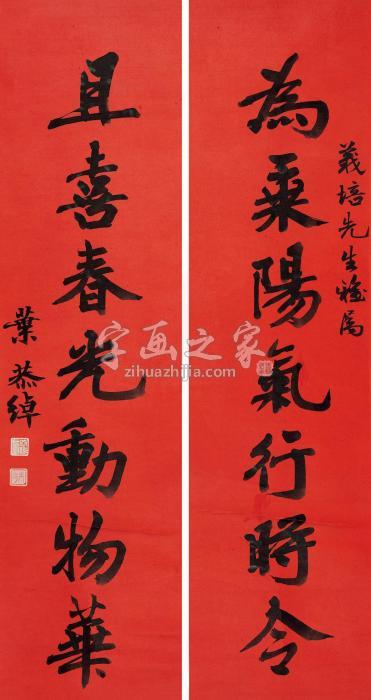 義培先生雅属
為乗陽氣行時令
且喜春光動物華
葉恭綽
字画之家
zihuazhijia.com